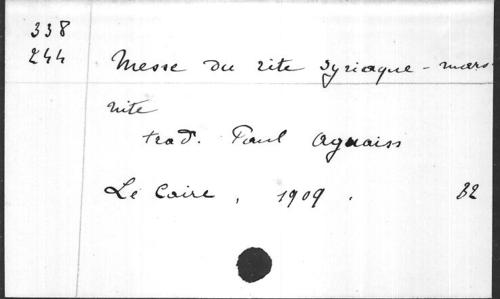 338
244
Messe du rite syriaque - maro-
nite
trad. Paul Aguaiss
Le Caire, 1909.
82